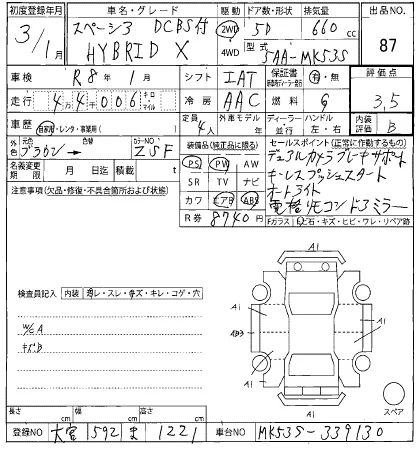 初度登録年月 車名・グレード 駆動 ドア数・形状 排気量 出品No.
3/1月 スペーシア DCBS付 2WD 5D 660cc 87
HYBRID X 4WD 型式 5AA-MK53S
車検 R8年1月 シフト IAT 保証書 有・無 評価点
走行 44千006 Km マイル 冷房 AAC 燃料 G 3,5
車歴 自家用・レンタ・事業用( ) 定員 4人 外車モデル 年 ディーラー・並行 ハンドル 左・右 内装評価 B
外色 元色 ブラウン → 色替 カラーNO ZSF 装備品(純正品に限る) セールスポイント(正常に作動するもの)
名義変更期限 月 日迄 積載 t PS PW AW デュアルカメラブレーキサポート
注意事項(欠品・修復・不具合箇所および状態) SR TV ナビ キーレスプッシュスタート
カワ エアB ABS オートライト
R券 8740円 電格リモコンドアミラー
Fガラス 飛石・キズ・ヒビ・ワレ・リペア跡
検査員記入 内装 汚レ・スレ・キズ・キレ・コゲ・穴
W/C A
キズB
A1
A1
A1
A1
A1
スペア
長さ cm 幅 cm 高さ cm
登録NO 大宮 592 ま 1221 車台NO MK53S-339130